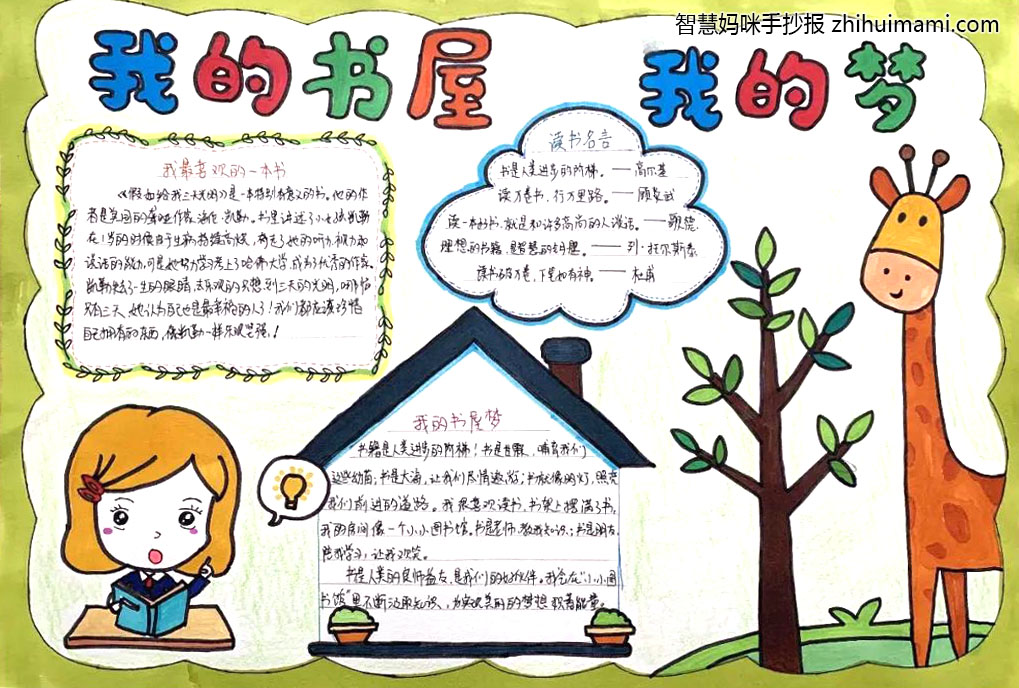 智慧妈咪手抄报 zhihuimami.com
我的书屋 我的梦
我最喜欢的一本书
《假如给我三天光明》是一本特别有意义的书。它的作
者是美国的著名作家海伦·凯勒。书里讲述了小女孩凯勒
在1岁的时候由于生病持续高烧，夺走了她的听力、视力和
说话的能力，可是她努力学习考上了哈佛大学，成为了优秀的作家。
凯勒失去了一生的眼睛，
只有三天，她认为自己也是最幸福的人了！我们都应该珍惜
自己拥有的东西，像凯勒一样乐观坚强！
读书名言
书是人类进步的阶梯。——高尔基
读万卷书，行万里路。——顾炎武
读一本好书，就是和许多高尚的人谈话。——歌德
理想的书籍，是智慧的钥匙。——列·托尔斯泰
读书破万卷，下笔如有神。——杜甫
我的书屋梦
书籍是人类进步的阶梯！书是甘霖，哺育我们
这些幼苗；书是大海，让我们尽情遨游；书就像明灯，照亮
我们前进的道路。我很喜欢读书，书架上摆满了书，
我的房间像一个小小图书馆。书是老师，教我知识；书是朋友，
陪我学习，让我欢笑。
书是人类的良师益友，是我们的好伙伴。我会在“小小图
书馆”里不断汲取知识，为实现美丽的梦想积蓄能量。